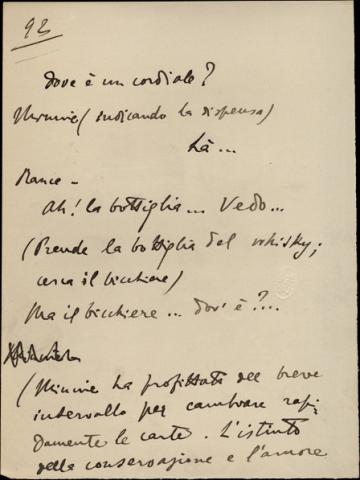 93
Dove è un cordiale?
Minnie (indicando la dispensa)
Là...
Rance -
Ah! la bottiglia... Vedo...
(Prende la bottiglia del whisky;
cerca il bicchiere)
Ma il bicchiere... dov' è?...
(Minnie ha profittato del breve
intervallo per cambiare rapi-
damente le carte. L'istinto
della conservazione e l'amore